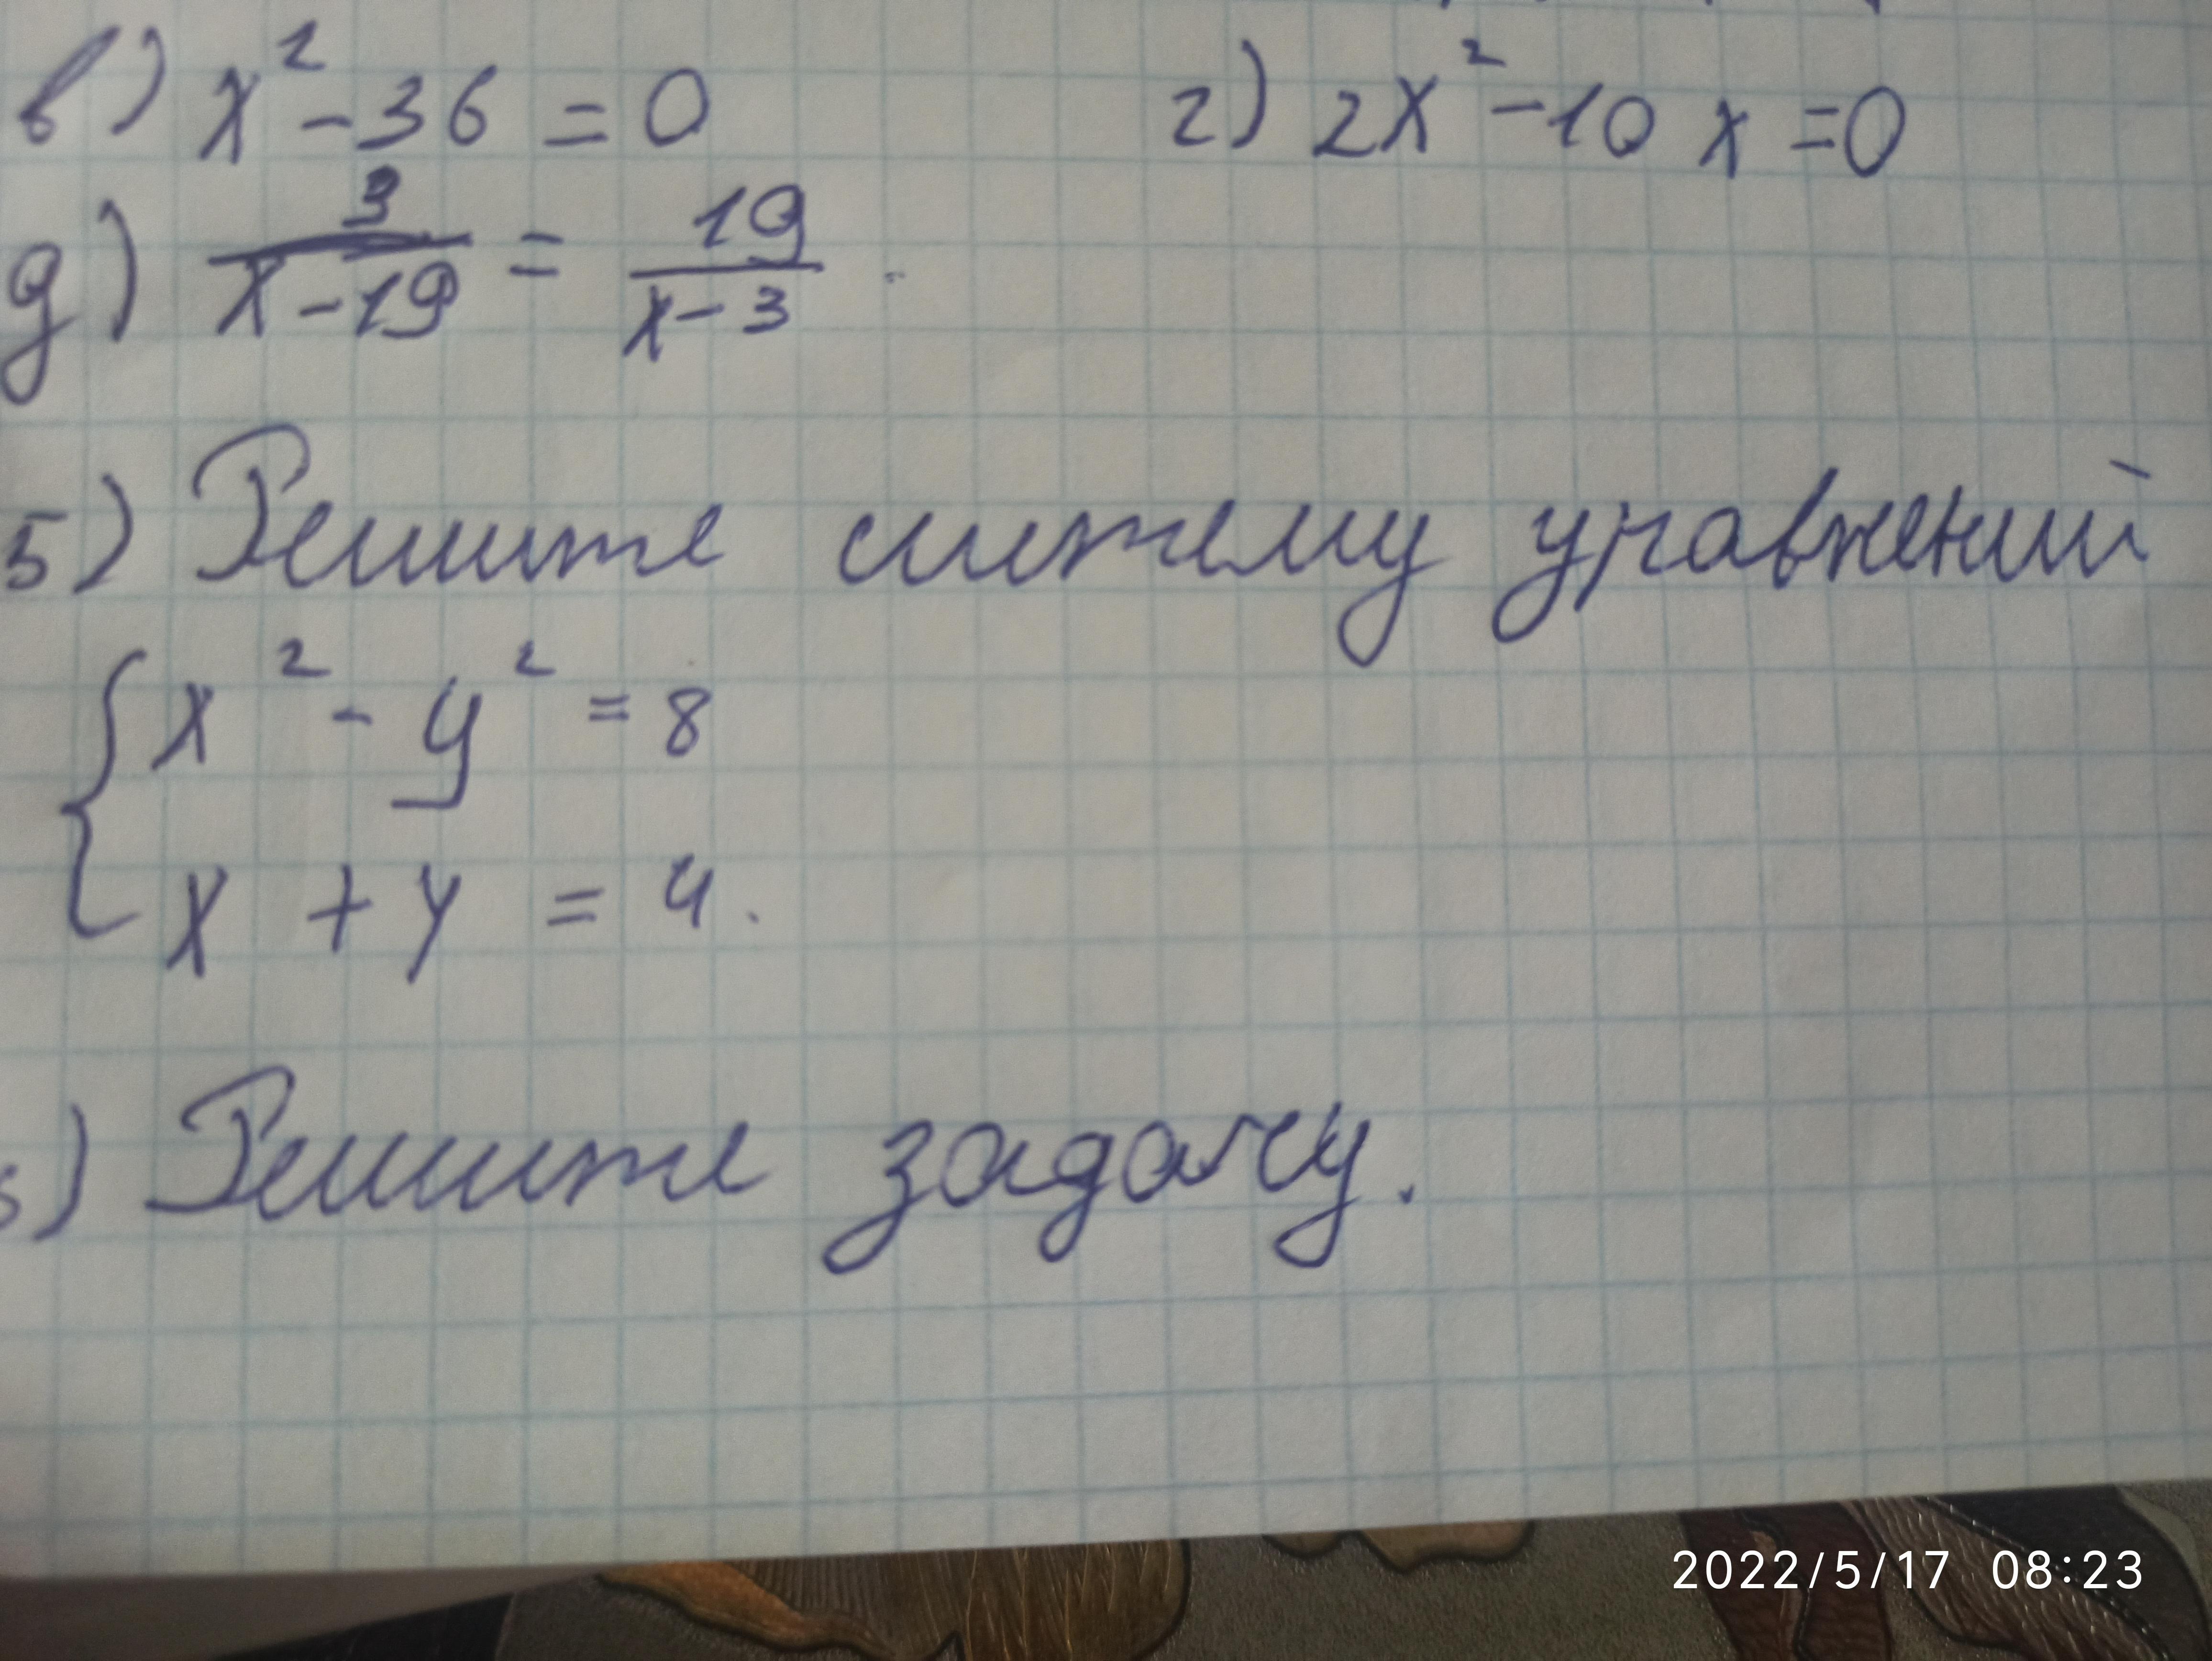 в) x² - 36 = 0 г) 2x² - 10x = 0
д) 3/(x - 19) = 19/(x - 3)
5) Решите систему уравнений
{ x² - y² = 8
x + y = 4.
) Решите задачу.
2022/5/17 08:23